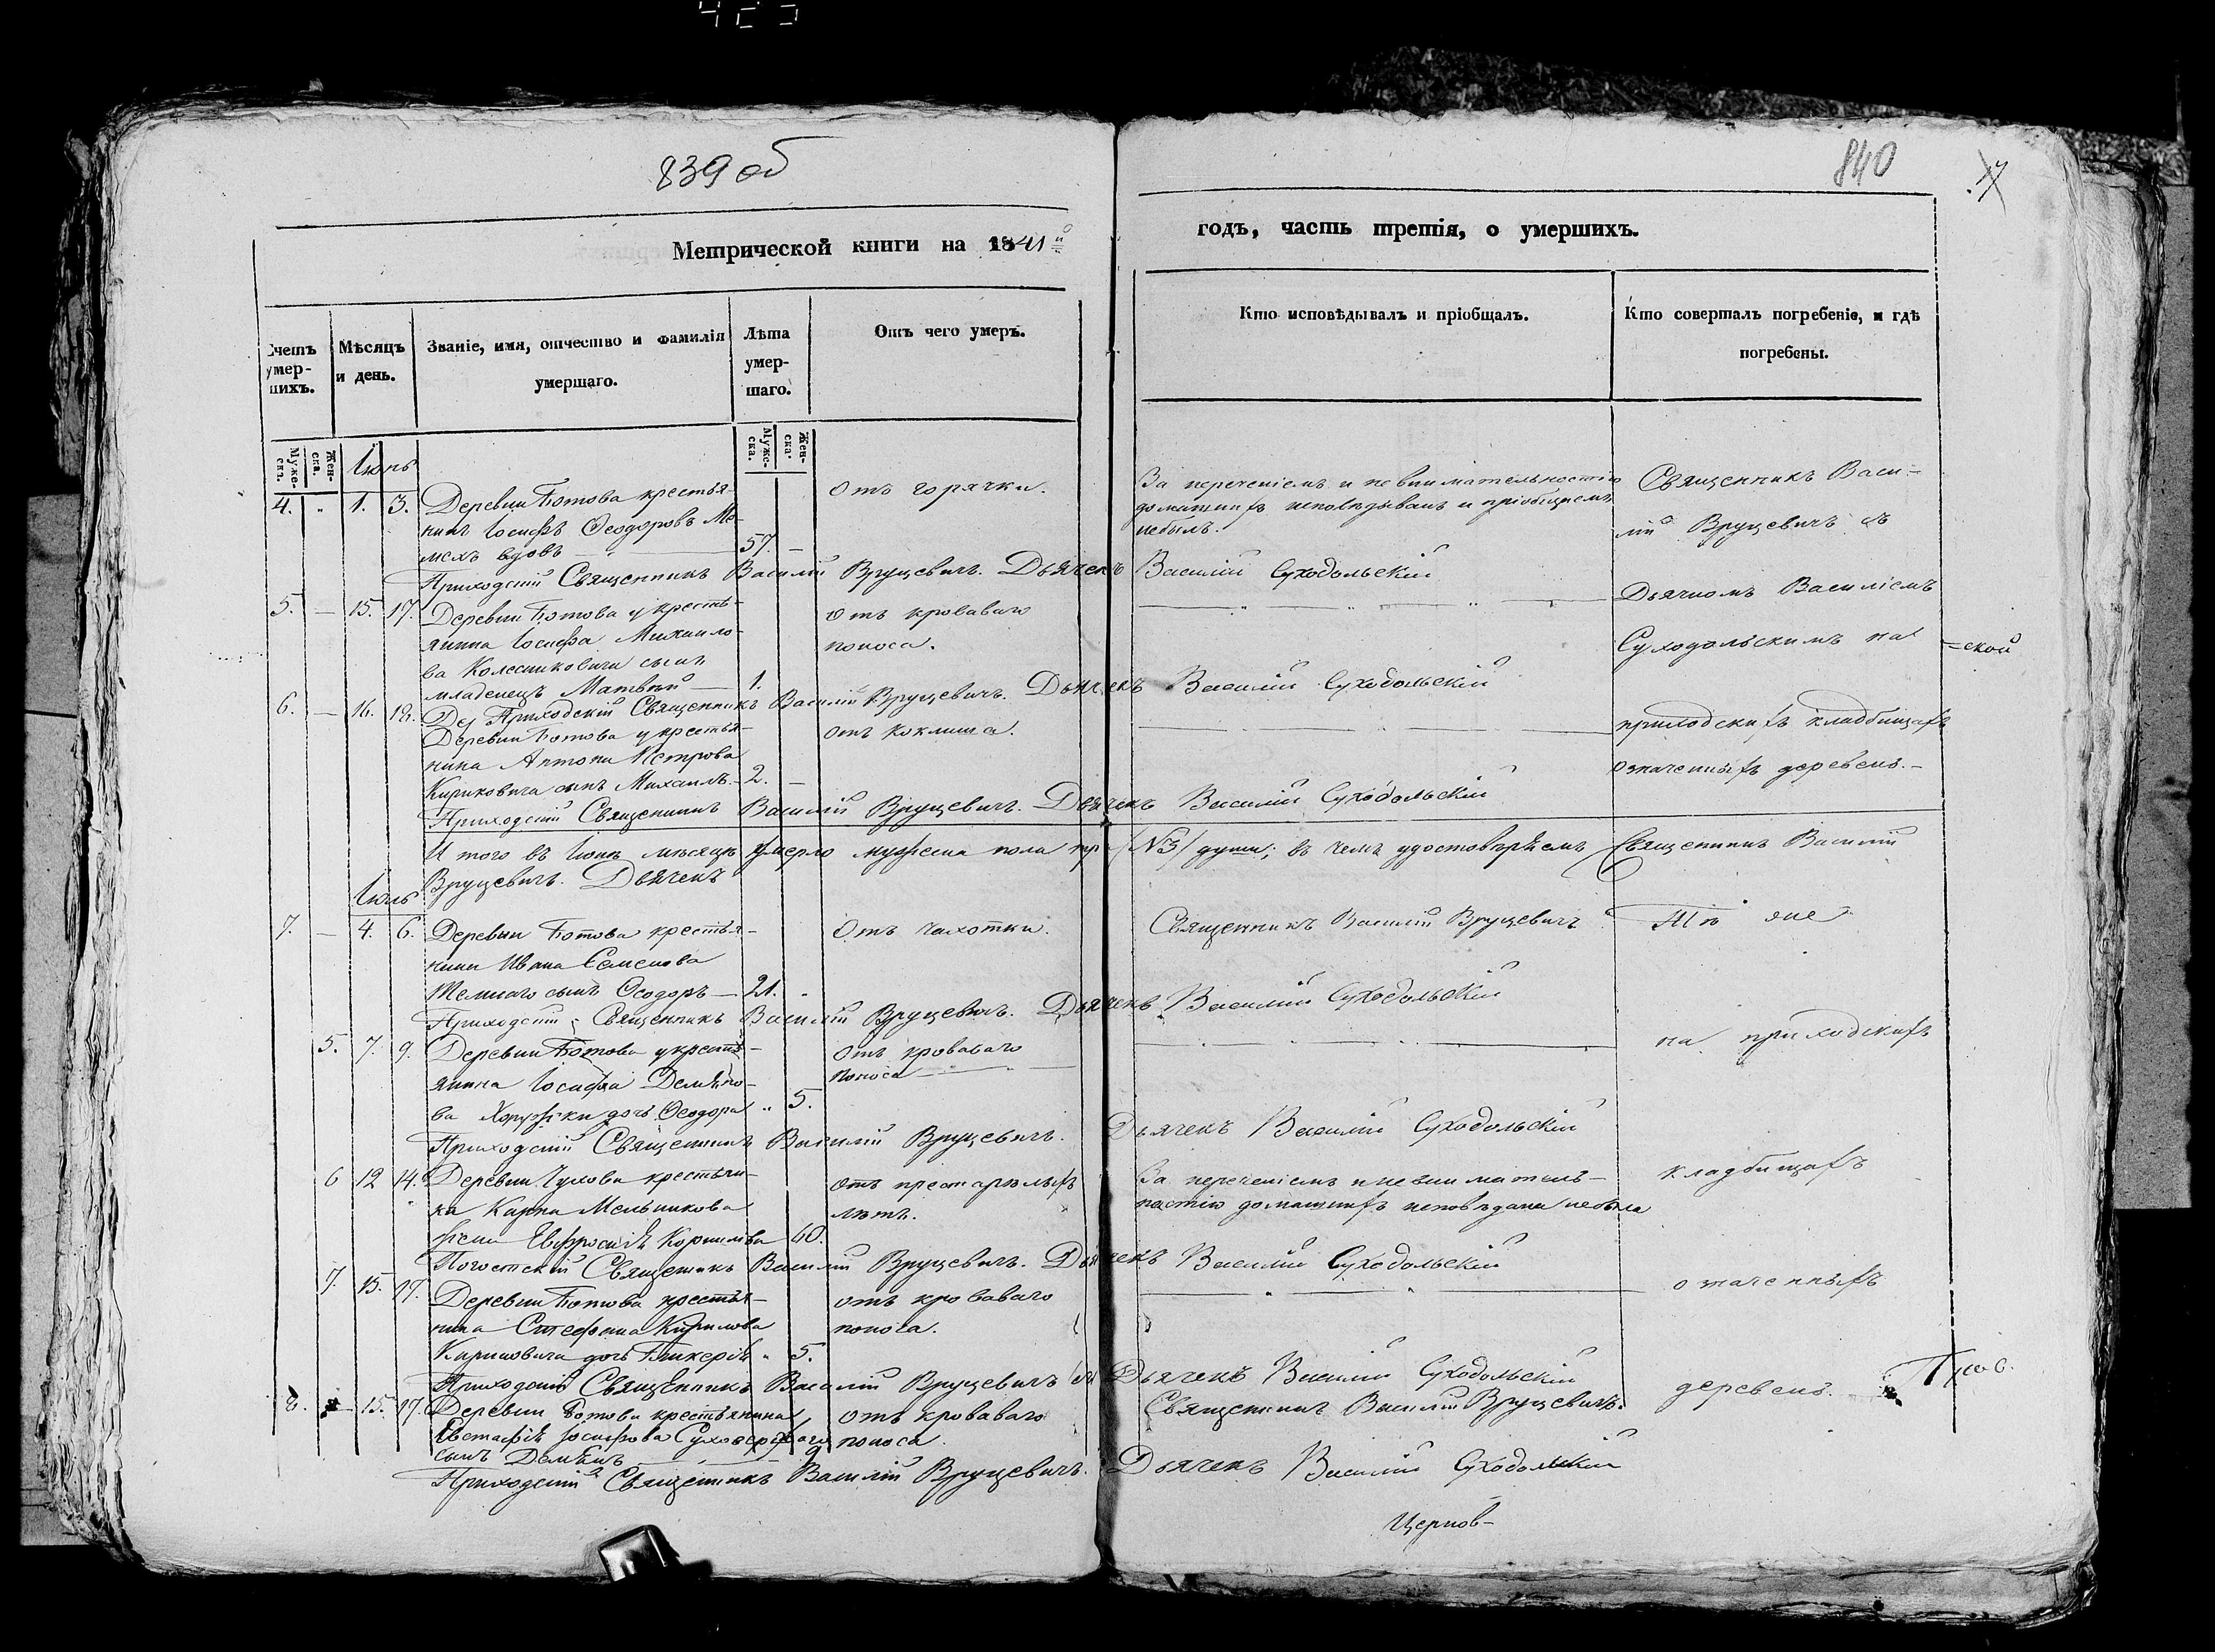 839 об
840
Метрической книги на 1841й
годъ, часть третія, о умершихъ.
Счетъ умершихъ.
Мѣсяцъ и день.
Званіе, имя, отчество и фамилія умершаго.
Лѣта умершаго.
Отъ чего умеръ.
Кто исповѣдывалъ и пріобщалъ.
Кто совершалъ погребеніе, и гдѣ погребены.
Мужеска.
Женска.
Мужеска.
Женска.
Іюнь
4. 1. 3. Деревни Ботова крестья- Отъ горячки.
нинъ Іосифъ Ѳеодоровъ
вдовъ 57.
За нереченіемъ и невнимательностію
домашнихъ исповѣдыванъ и пріобщаемъ
небылъ.
Священникъ Васи-
лій Вруцевичъ съ
Приходскій Священникъ Василій Вруцевичъ. Дьячекъ Василій Суходольскій
Дьячкомъ Василіемъ
5. 15. 17. Деревни Ботова у кресть- отъ кроваваго
янина Іосифа Михаило- поноса.
ва Колесниковича сынъ
младенецъ Матвѣй 1.
Суходольскимъ на
=ской
6. 16. 18. Приходскій Священникъ Василій Вруцевичъ. Дьячекъ Василій Суходольскій
Деревни Ботова у крестья- отъ коклиша.
нина Антона Петрова
Кириковича сынъ Михаилъ 2.
приходскихъ кладбищахъ
означенныхъ деревень.
Приходскій Священникъ Василій Вруцевичъ. Дьячекъ Василій Суходольскій
И того въ Іюнѣ мѣсяцѣ умерло мужеска пола три /№3/ души; въ чемъ удостовѣряемъ Священникъ Василій
Вруцевичъ. Дьячекъ
Іюль
7. 4. 6. Деревни Ботова крестья- Отъ чахотки.
нина Ивана Семенова
Темнаго сынъ Ѳеодоръ 21.
Священникъ Василій Вруцевичъ
Тѣ же
Приходскій Священникъ Василій Вруцевичъ. Дьячекъ Василій Суходольскій
5. 7. 9. Деревни Ботова у кресть- отъ кроваваго
янина Іосифа поноса
ва Хоружки дочь Ѳеодора 5.
на приходскихъ
Приходскій Священникъ Василій Вруцевичъ. Дьячекъ Василій Суходольскій
6 12 14. Деревни крестьян- отъ престарѣлыхъ
ка Карпа Мельникова лѣтъ.
жена Евфросинія 60.
За нереченіемъ и невниматель-
ностію домашнихъ исповѣдана небыла
кладбищахъ
Погостскій Священникъ Василій Вруцевичъ. Дьячекъ Василій Суходольскій
7. 15. 17. Деревни Ботова крестья- отъ кроваваго
нина Стефана Кирилова поноса.
Кириковича дочь 5.
означенныхъ
Приходскій Священникъ Василій Вруцевичъ Дьячекъ Василій Суходольскій
8. 15. 17. Деревни Ботова крестьянина отъ кроваваго
Евстафія Іосифова поноса.
сынъ
Священникъ Василій Вруцевичъ.
деревень.
Приходскій Священникъ Василій Вруцевичъ. Дьячекъ Василій Суходольскій
Церков-